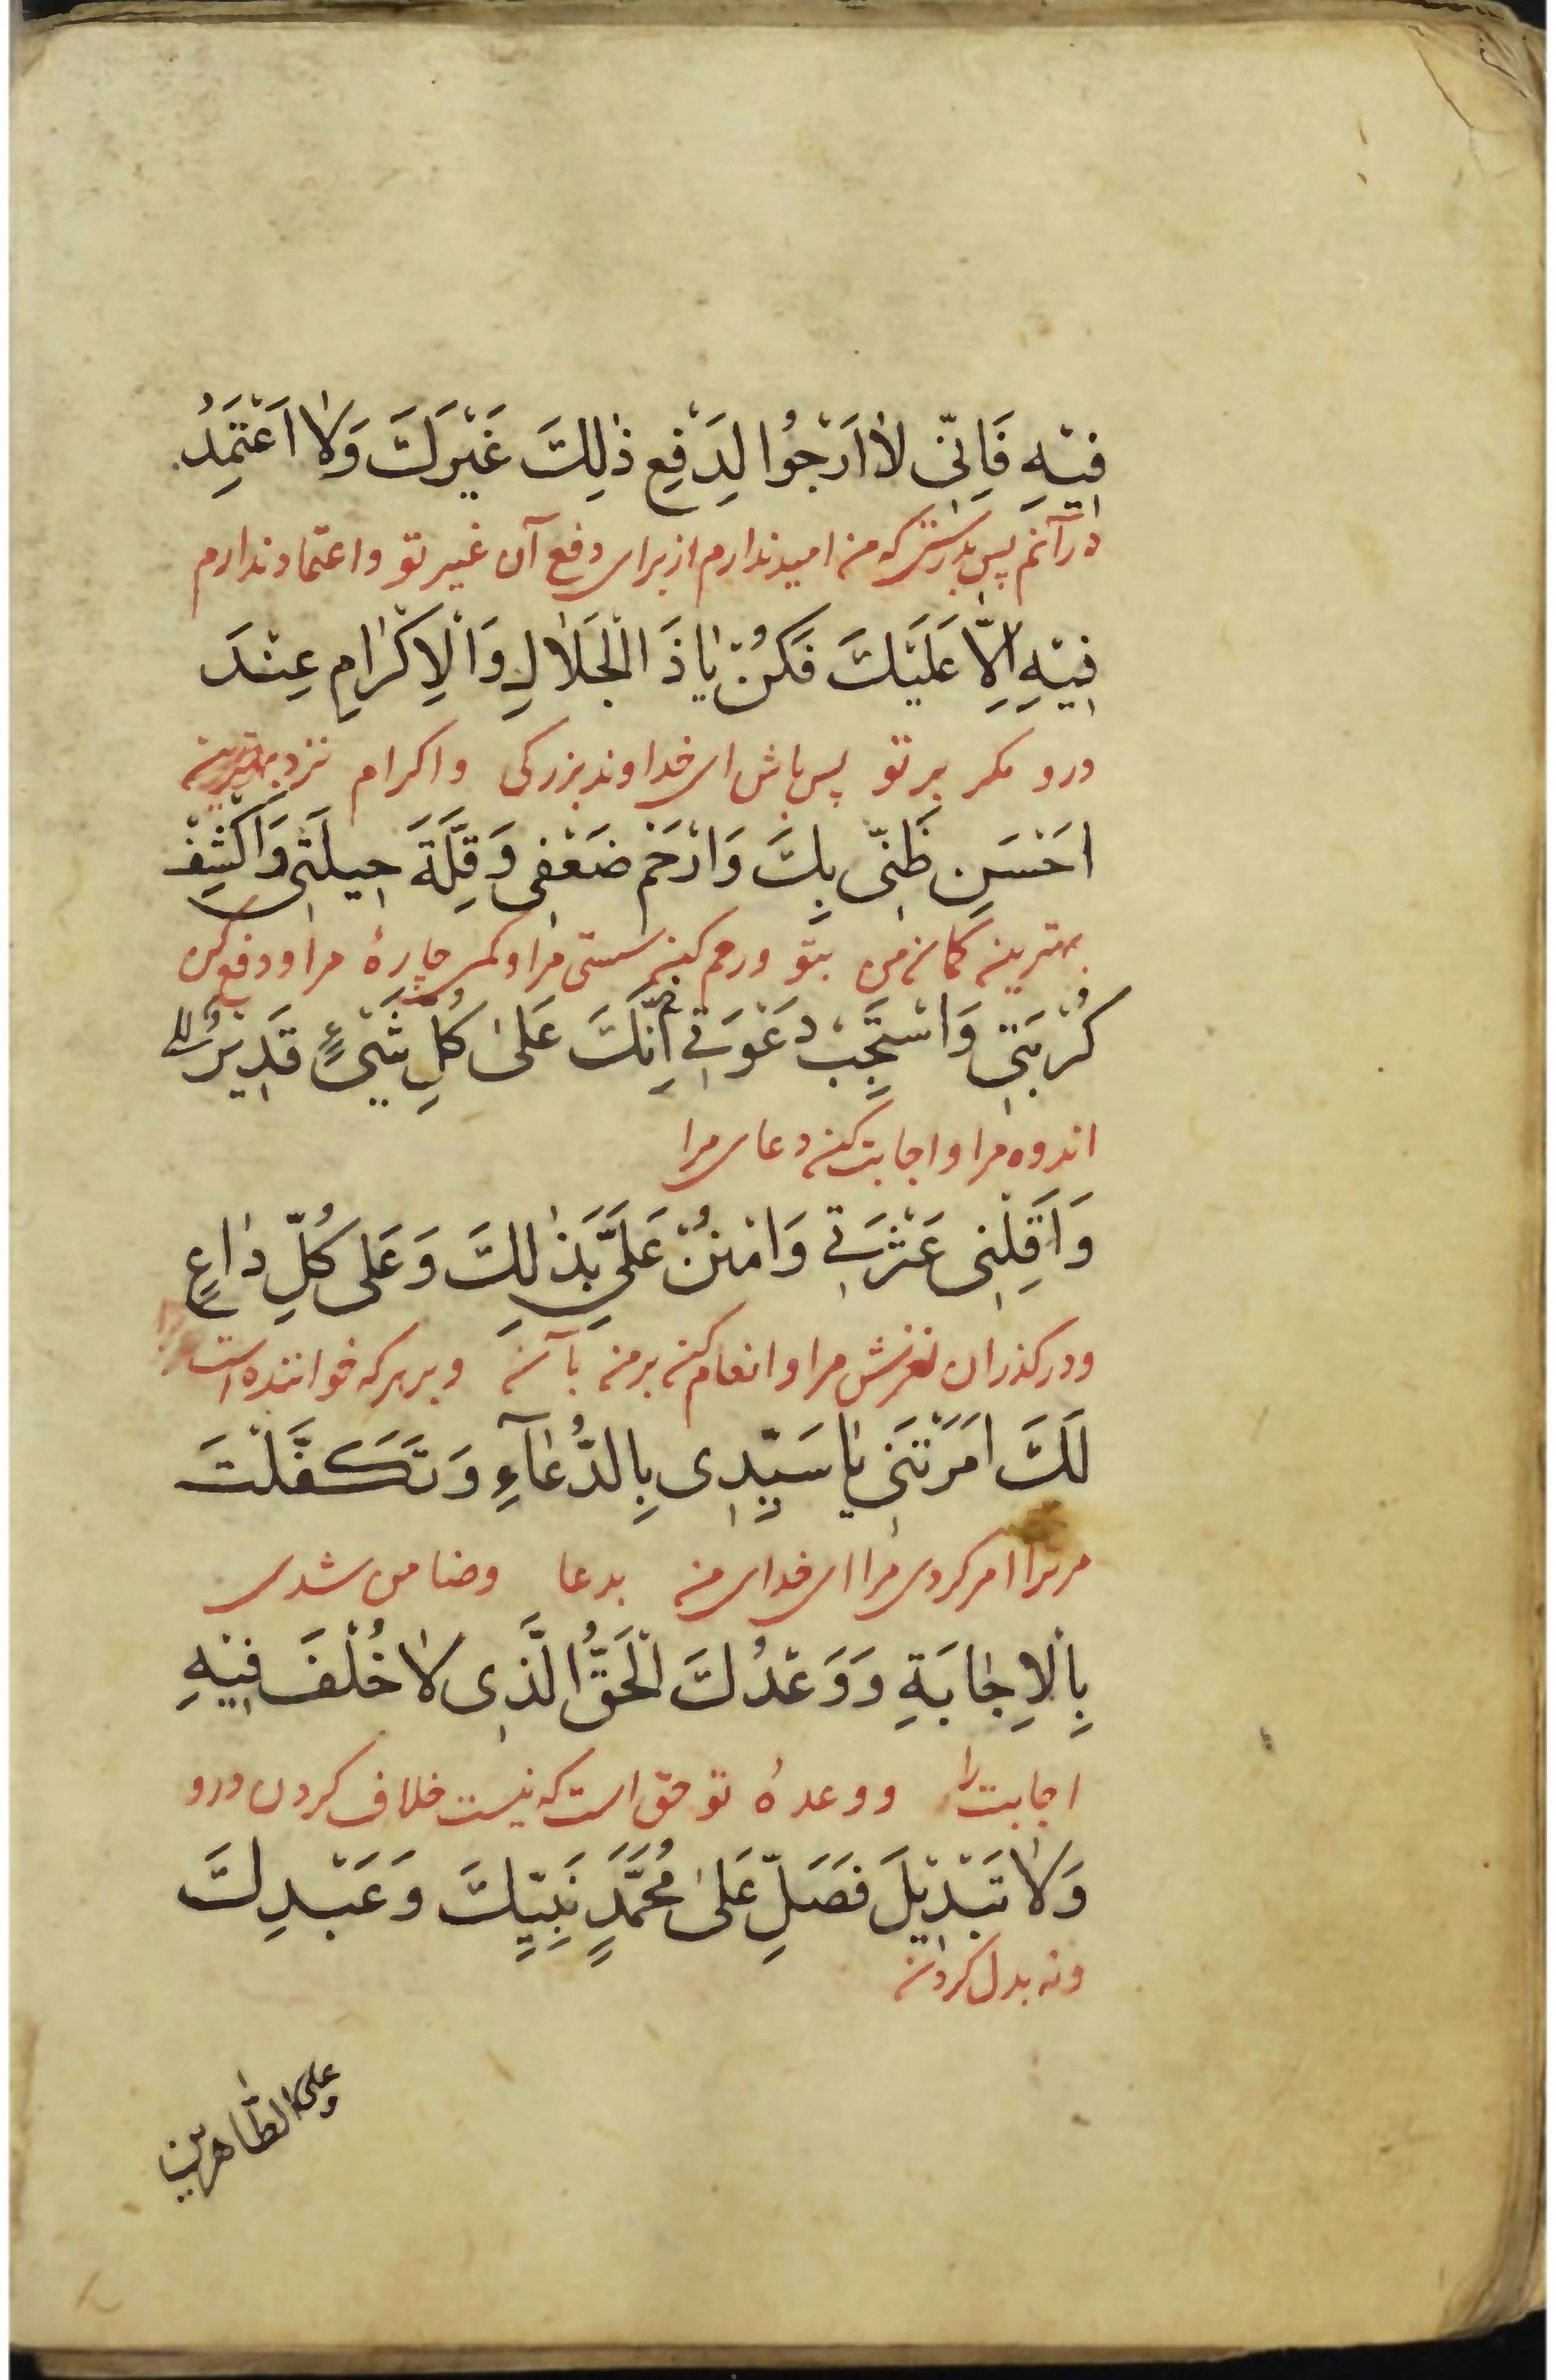 فِيْهِ فَاِنّى لاٰ اَرْجُوا لِدَفِعِ ذٰلِكَ غَيْرَكَ وَلاٰ اَعْتَمِدُ
در آنم پس بدرستى كه من اميد ندارم از براى دفع آن غير تو و اعتماد ندارم
فِيْهِ اِلاّٰ عَلَيْكَ فَكُنْ يٰا ذَ الْجَلاٰلِ وَالْاِكْرٰامِ عِنْدَ
درو مكر بر تو پس باش اى خداوند بزركى و اكرام نزد بهترين
اَحْسَنِ ظَنّى بِكَ وَارْحَمْ ضَعْفى وَقِلَّةَ حيلَتى وَاكْشِفْ
بهترين كمان من بتو و رحم كن سستى مرا و كمى چارهٔ مرا و دفع كن
كُرْبَتى وَاسْتَجِبْ دَعْوَتى اِنَّكَ عَلىٰ كُلِ شَىْءٍ قَديْرٌ
اندوه مرا و اجابت كن دعاى مرا
وَاَقِلْنى عَثْرَتى وَامْنُنْ عَلَىَّ بَذٰلِكَ وَعَلى كُلِّ دٰاعٍ
و در كذران لغزش مرا و انعام كن بر من با آن و بر هر كه خواننده است
لَكَ اَمَرْتَنى يٰا سَيّدى بِالدُّعٰآءِ وَتَكَفَّلْتَ
مر ترا امر كردى مرا اى خداى من بدعا و ضامن شدى
بِالْاِجٰابَةِ وَوَعْدُكَ الْحَقُّ الَّذى لاٰ خُلْفَ فيْهِ
اجابت را و وعدهٔ تو حق است كه نيست خلاف كردن درو
وَلاٰ تَبْديْلَ فَصَلِّ عَلىٰ مُحَمَّدٍ نَبِيِّكَ وَعَبْدِكَ
و نه بدل كردن
وعلى الطّاهرين